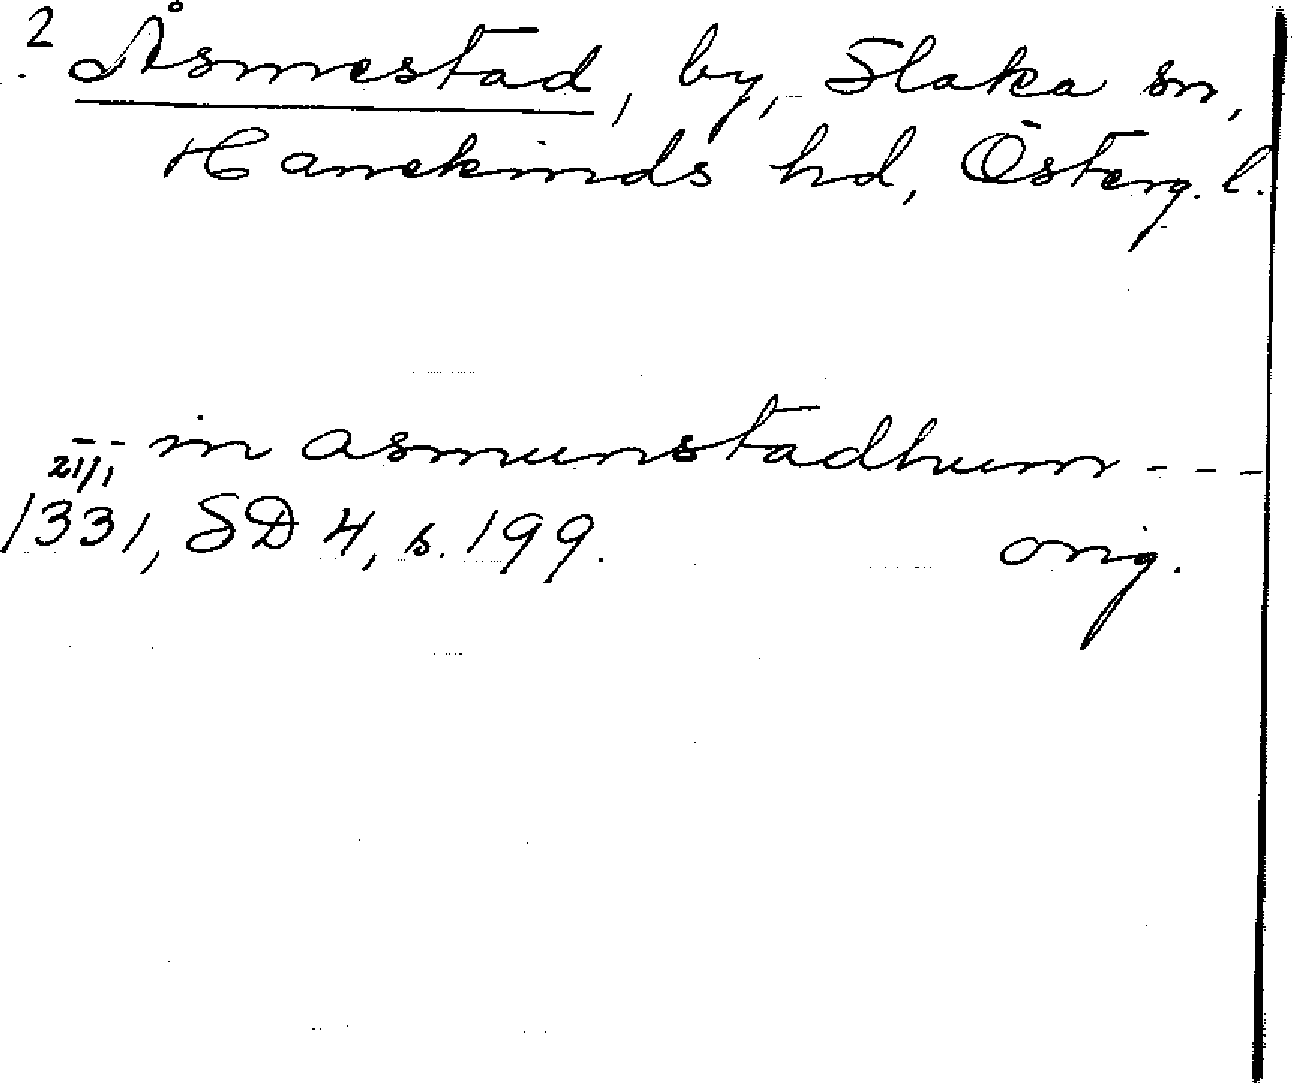 ? Åsmestad, by, Slaka sn,
Hanekinds hd, Österg. l.
-- in asmunstadhum ---
21/1
1331, SD 4, s. 199. orig.